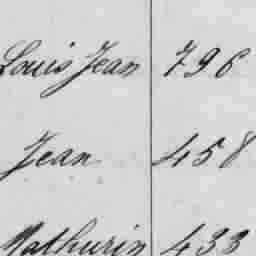 Louis Jean 796
Jean 458
Mathurin 433